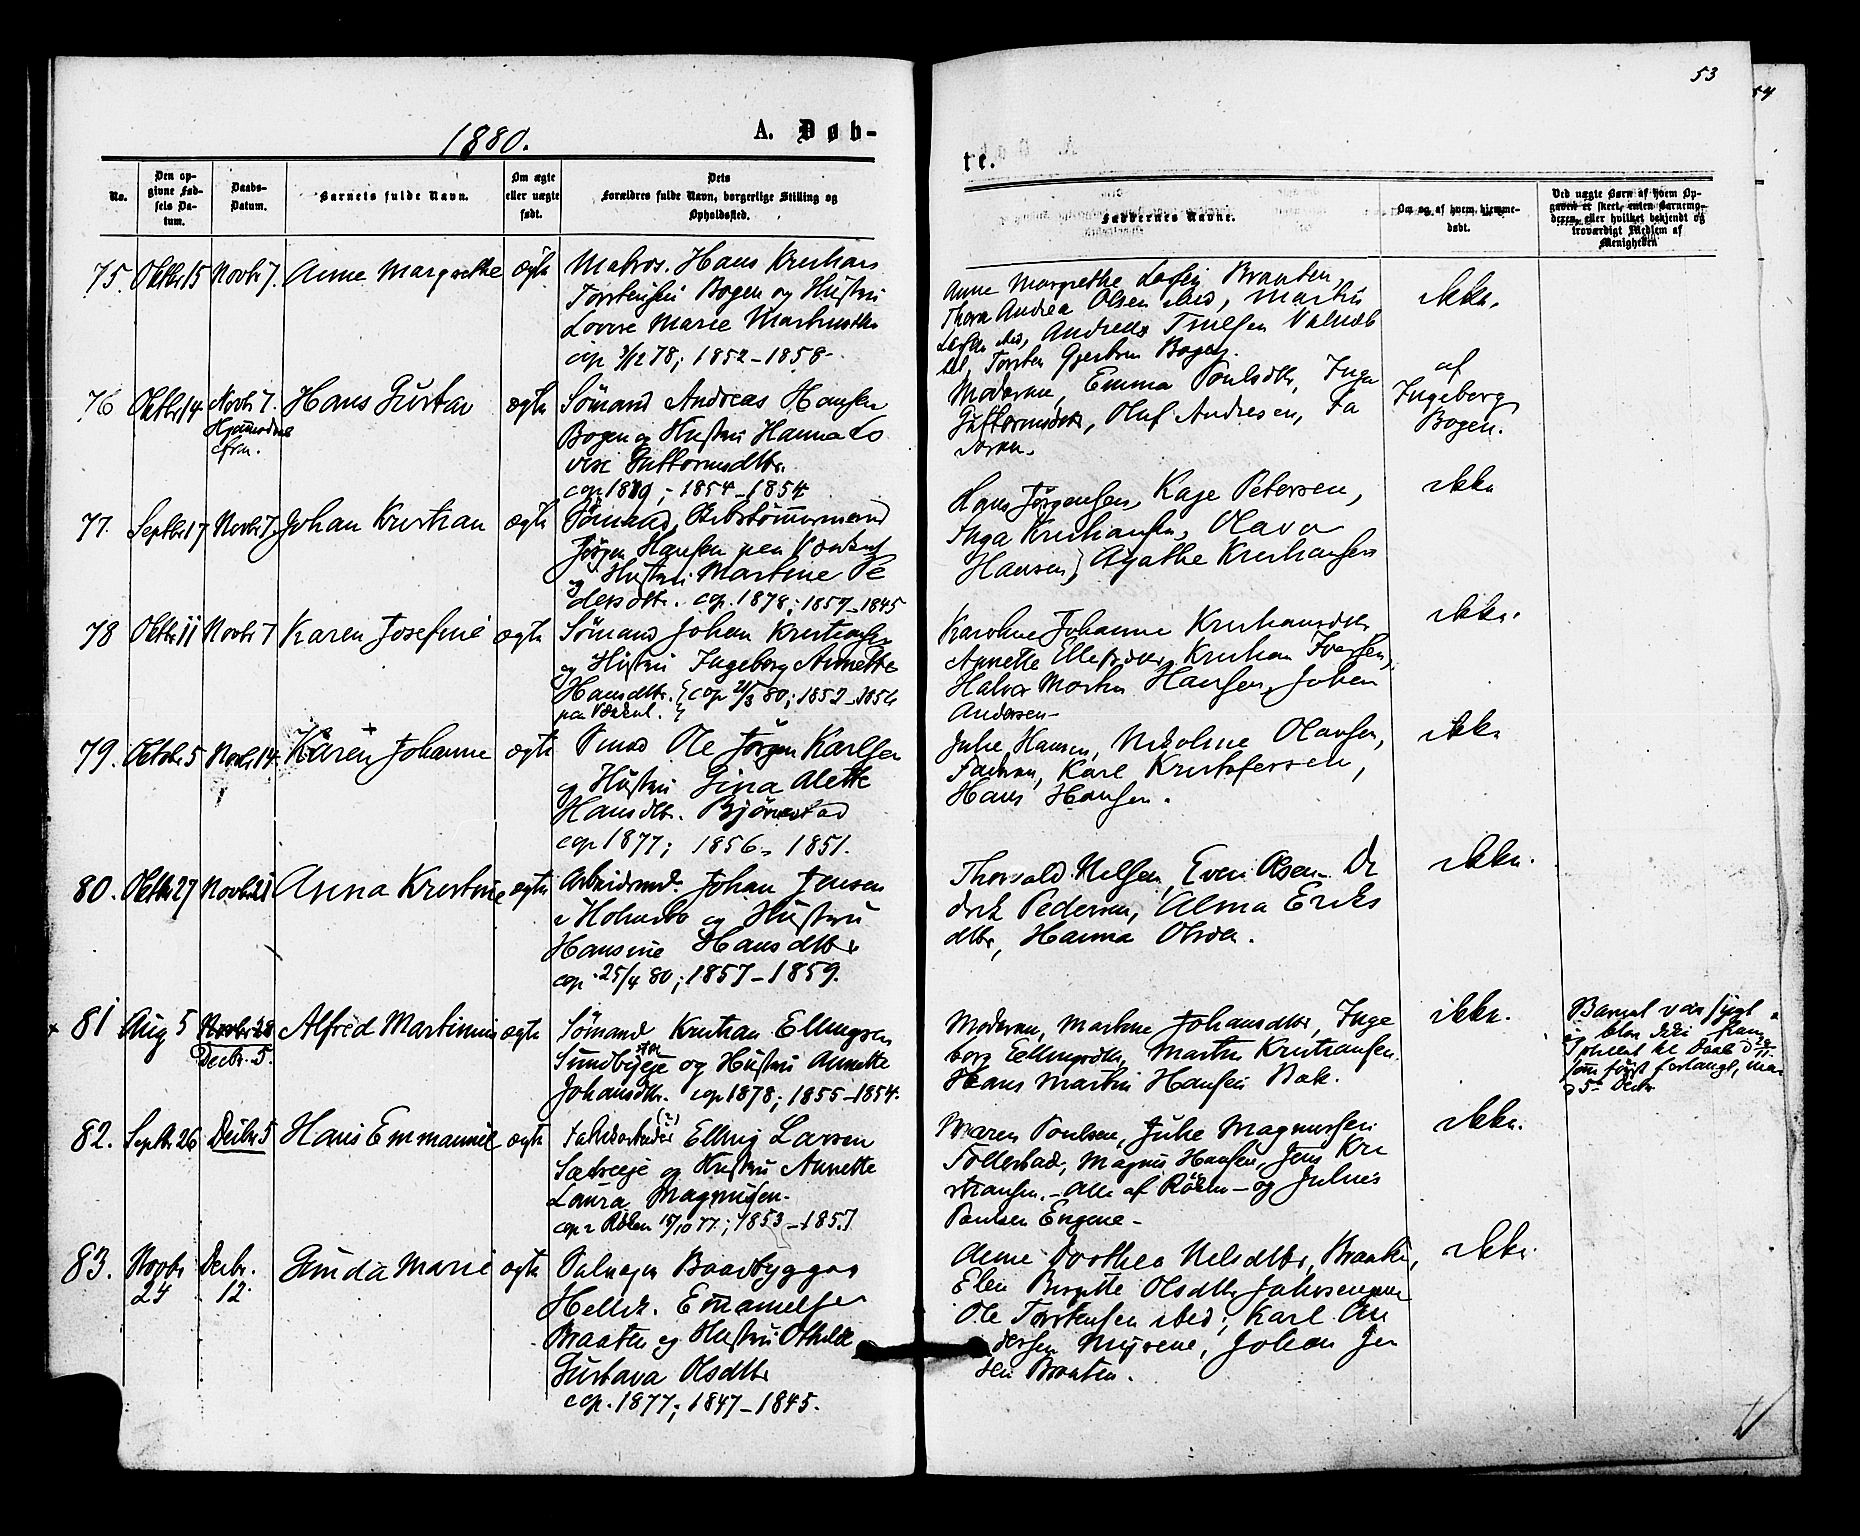 53
54
1880.
A. Døb-
te.
No.
Den op-
givne Fød-
sels Da-
tum.
Daabs-
Datum.
Barnets fulde Navn.
Om ægte
eller uægte
født.
Dets
Forældres fulde Navn, borgerlige Stilling og
Opholdssted.
Faddernes Navne.
Om og af hvem hjemme-
døbt.
Ved uægte Børn af hvem Op-
gaven er skeet, enten Barnemo-
deren, eller hvilket bekjendt og
troværdigt Medlem af
Menigheden
75. Oktbr 15 Novbr 7. Anne Margrethe ægte
Matros. Hans Kristians
Torstensen Bogen og Hustru
Lovise Marie Martinsdtr
cop 78; 1852-1858-
Anne Margrethe Braaten,
Thora Andrea Olsen ibid, Martin
ibid, Andreas
Torsten Gjertsen Bogen.
ikke.
76 Oktbr 14 Novbr 7.
Hjemmedøbt
Hans Gustav ægte
Sømand Andreas Hansen
Bogen og Hustru Hanna Lo
vise Guttormsdtr.
cop 1879; - 1854-1854
Moderen, Emma Poulsdtr, Inga
Guttormsdtr, Oluf Andresen, Fa
deren.
af
Ingeborg
Bogen.
77. Septbr 17 Novbr 7. Johan Kristian ægte
Sømand, Skibstømmermand
Jørgen Hansen
og Hustru Martine Pe
dersdtr. cop. 1878; 1857-1845
Hans Jørgensen, Kaje Petersen,
Inga Kristiansen, Olava
Hansen, Agathe Kristiansen
ikke
78 Oktbr 11 Novbr 7 Karen Josefine ægte
Sømand Johan Kristiansen
og Hustru Ingeborg Annette
Hansdtr. cop 21/3 80; 1852-1856
Karoline Johanne Kristiansdtr
Annette Ellefsdtr, Kristian Iversen,
Halvor Morten Hansen, Johan
Andersen-
ikke.
79. Octobr 5 Novbr 14 Karen Johanne ægte
Smed Ole Jørgen Karlsen
og Hustru Gina Alette
Hansdtr. Bjørnstad
cop 1877; 1856- 1851.
Julie Hansen, Nikoline Olausen,
Faderen, Karl Kristofersen,
Hans Hansen.
ikke
80. Oktbr 27 Novbr 21 Anna Kristine ægte
Arbeidsmd. Johan Jensen
i Holmsbo og Hustru
Hansine Hansdtr
cop. 25/4 80; 1857-1859.
Thorvald Nilsen, Even Olsen Di
drik Pedersen, Alma Eriks
dtr, Hanna Olsen.
ikke.
81 Aug 5 Novbr 28
Decbr. 5.
Alfred Martinius ægte
Sømand Kristian Ellingsen
Sundbyeje og Hustru Annette
Johansdtr. cop 1878; 1855-1854.
Moderen, Martine Johansdtr, Inge
borg Ellingsdtr, Martin Kristiansen.
Hans Martin Hansen Bak.
ikke.
Barnet var sygt
og blev ikke frem
stillet til Daab d 28/11
som først forlangt, men
5te Decbr
82. Septbr 26 Decbr 5 Hans Emmanuel ægte
Fabrikarbeider Elling Larsen
Sætreeje og Hustru Annette
Laura Magnusen.
cop i Røken 18/10 77; 1853-1857
Maren Poulsen, Julie Magnussen
Tollerstad, Magnus Hansen, Jens Kri
stiansen. - Alle af Røken - og Julius
Paulsen Engene -
ikke.
83. Novbr
24
Decbr.
12.
Gunda Marie ægte
Baadbygger
Hellik. Emanuelsen
Braaten og Hustru Othilde
Gustava Olsdtr
cop. 1877; 1847-1845.
Anne Dorthea Nilsdtr, Braaten,
Elen Birgitte Olsdtr
Ole Torstensen ibid; Karl An
dersen Myrene, Johan Jen
sen Braaten.
ikke.